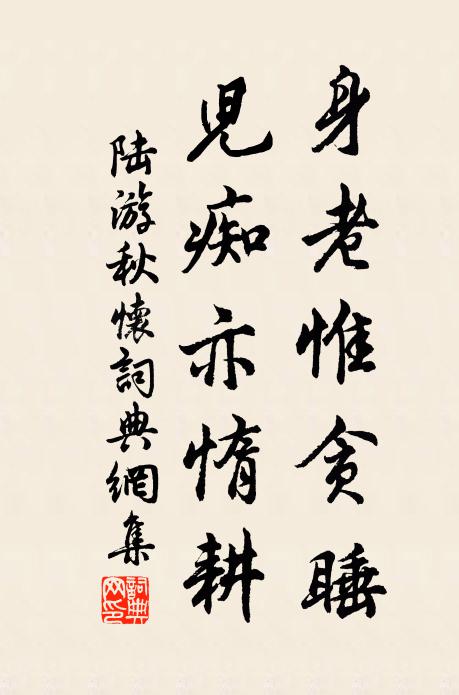 身老惟貪睡
兒痴亦惰耕
陸游秋懷詞典網集
詞典網印